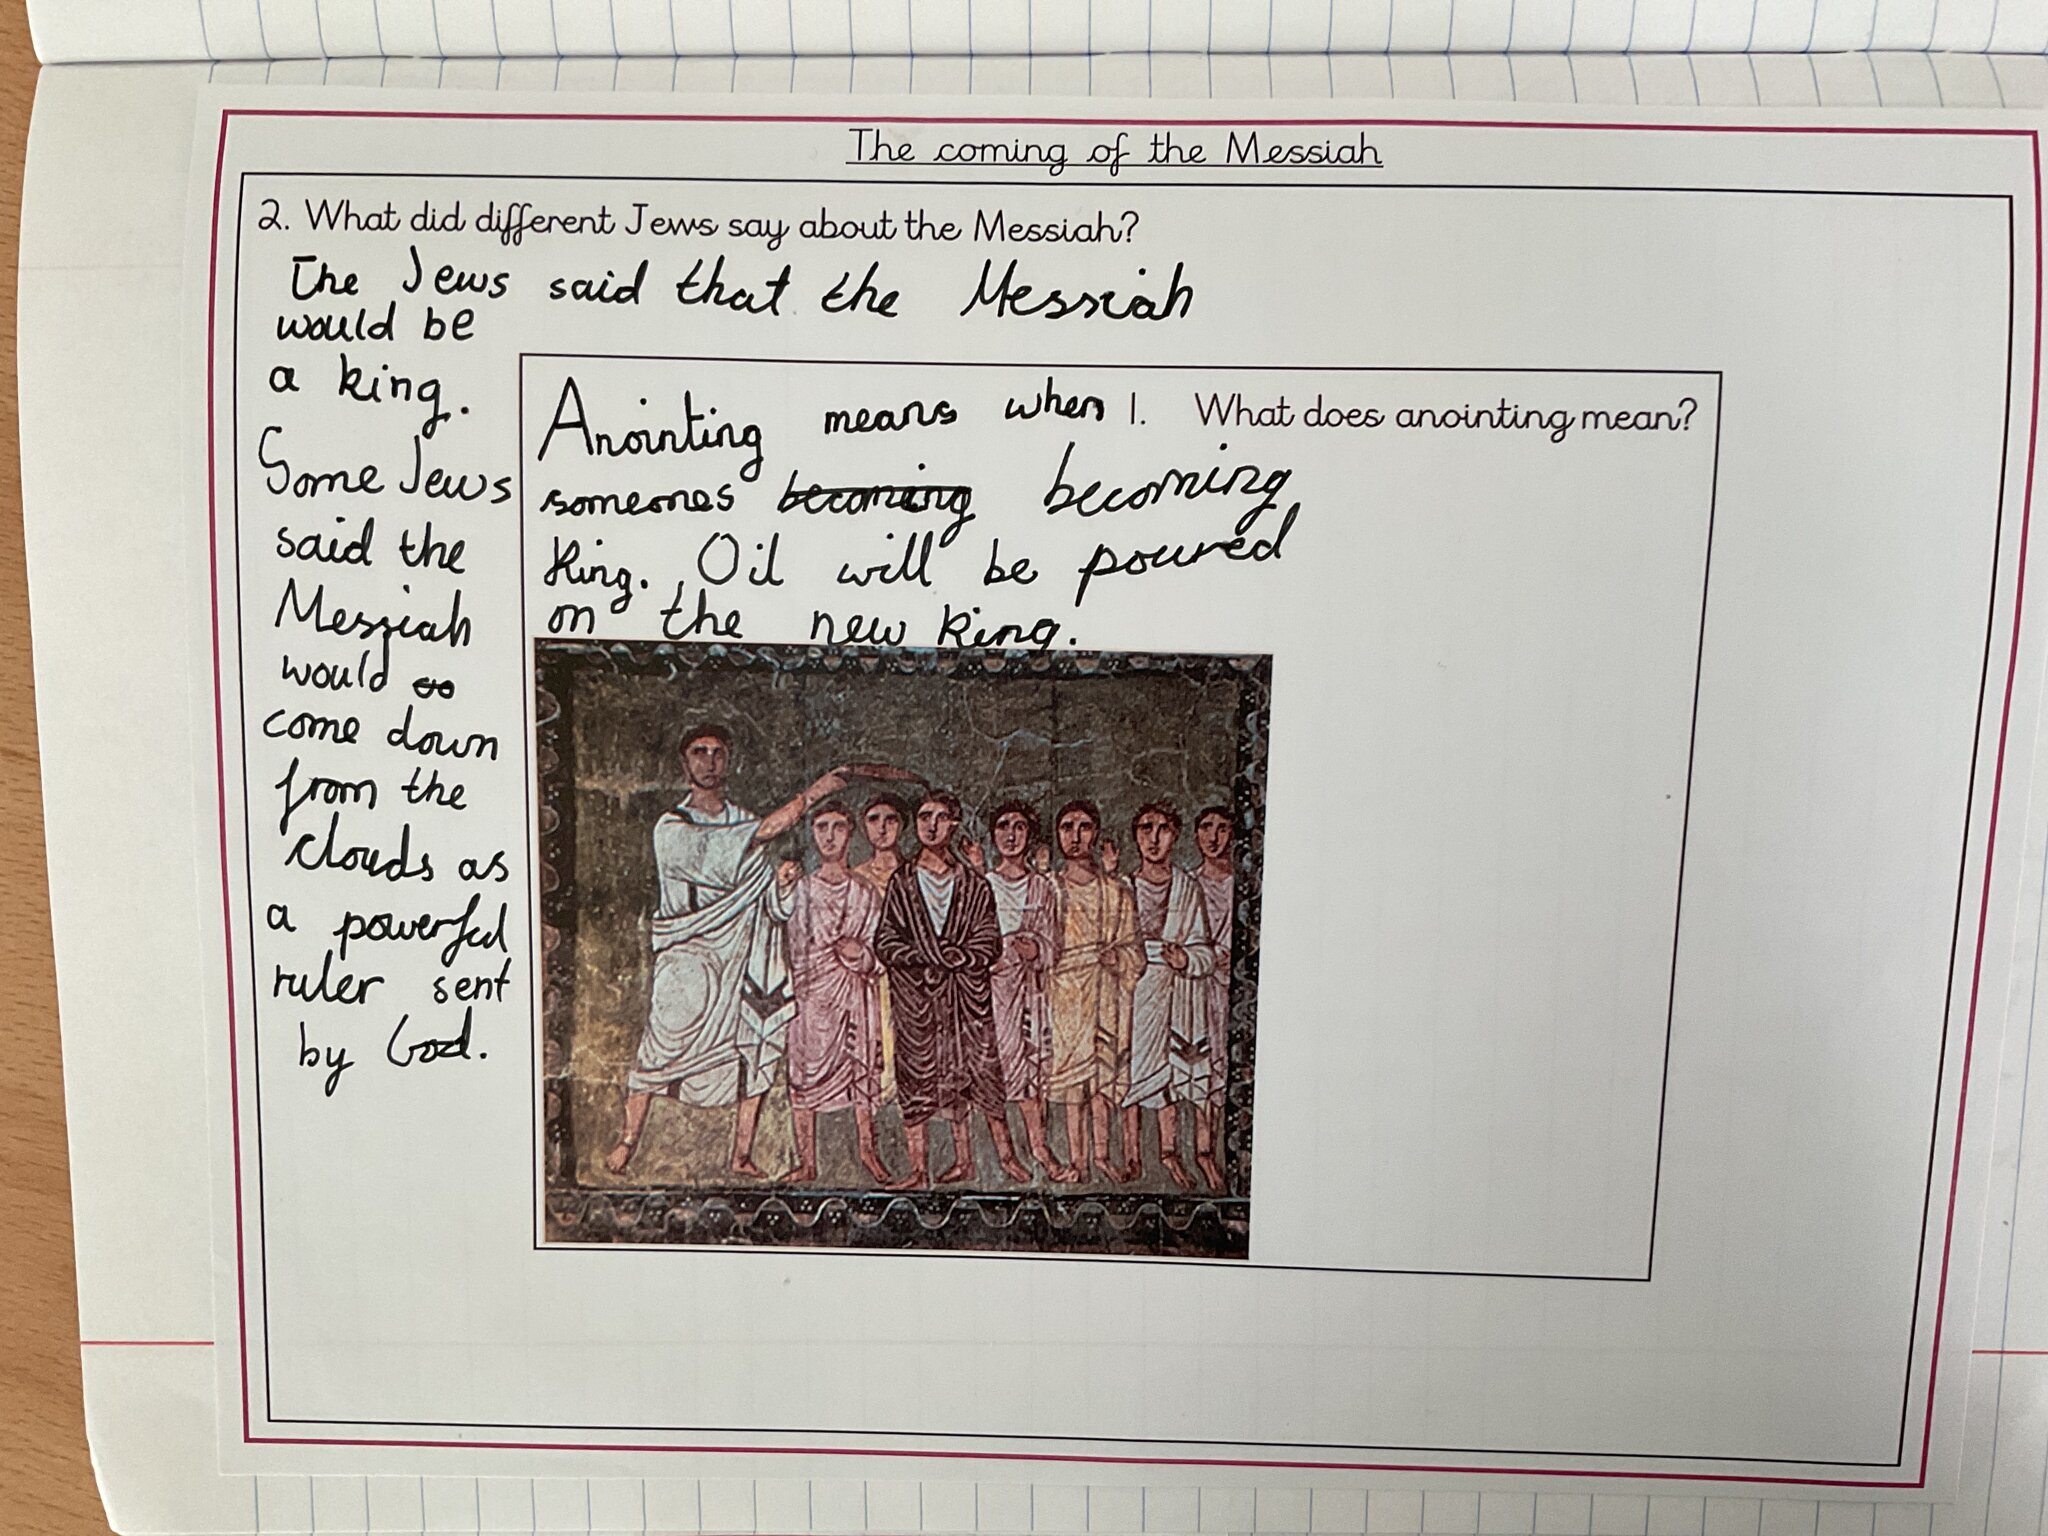 The coming of the Messiah
2. What did different Jews say about the Messiah?
The Jews said that the Messiah
would be
a king.
Some Jews
said the
Messiah
would
come down
from the
clouds as
a powerful
ruler sent
by God.
1. What does anointing mean?
Anointing means when
someones becoming becoming
King. Oil will be poured
on the new king.